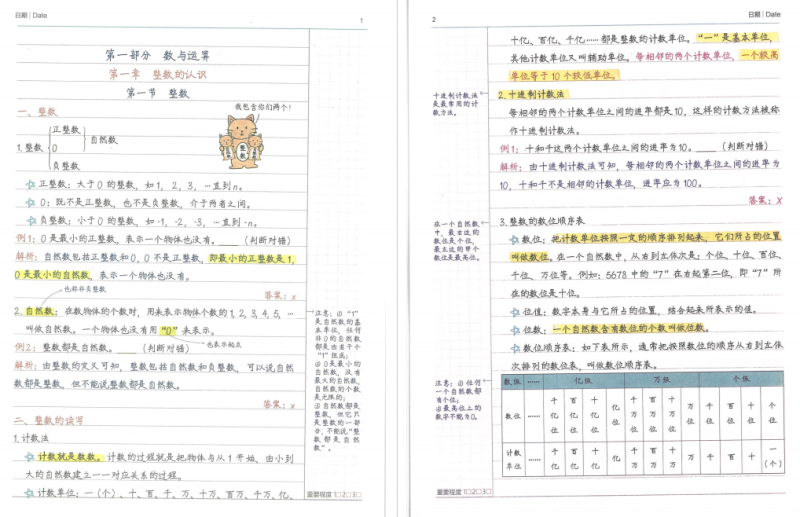 日期 | Date
1
第一部分 数与运算
第一章 整数的认识
第一节 整数
一、整数
我包含你们两个!
正整数
1.整数 0 自然数
负整数
整数
正整数:大于0的整数,如1,2,3,…直到n。
0:既不是正整数,也不是负整数,介于两者之间。
负整数:小于0的整数,如-1,-2,-3,…直到-n。
例1:0是最小的正整数,表示一个物体也没有。____(判断对错)
解析:自然数包括正整数和0,0不是正整数,即最小的正整数是1,
0是最小的自然数,表示一个物体也没有。
也称非负整数
答案:×
2.自然数:在数物体的个数时,用来表示物体个数的1,2,3,4,5,…
叫做自然数。一个物体也没有用“0”来表示。
也表示起点
例2:整数都是自然数。____(判断对错)
解析:由整数的意义可知,整数包括自然数和负整数,可以说自然
数都是整数,但不能说整数都是自然数。
答案:×
注意:①“1”
是自然数的基
本单位,任何
非0的自然数
都是由若干个
“1”组成;
②0是最小的
自然数,没有
最大的自然数,
自然数的个数
是无限的;
③自然数都是
整数,但它只
是整数的一部
分,不能说“整
数都是自然
数”。
二、整数的读写
1.计数法
计数就是数数。计数的过程就是把物体与从1开始、由小到
大的自然数建立一一对应关系的过程。
计数单位:一(个)、十、百、千、万、十万、百万、千万、亿、
重要程度 1□2□3□
2
日期 | Date
十亿、百亿、千亿……都是整数的计数单位。“一”是基本单位,
其他计数单位又叫辅助单位。每相邻的两个计数单位,一个较高
单位等于10个较低单位。
2.十进制计数法
十进制计数法
是最常用的计
数方法。
每相邻的两个计数单位之间的进率都是10,这样的计数方法被称
作十进制计数法。
例1:十和千这两个计数单位之间的进率为10。____(判断对错)
解析:由十进制计数法可知,每相邻的两个计数单位之间的进率为
10,十和千不是相邻的计数单位,进率应为100。
答案:×
3.整数的数位顺序表
在一个自然数
中,最右边的
数位是个位,
最左边的那个
数位是最高位。
数位:把计数单位按照一定的顺序排列起来,它们所占的位置
叫做数位。在一个自然数中,从右到左依次是:个位、十位、百位、
千位、万位等。例如:5678中的“7”在右起第二位,即“7”所
在的数位是十位。
位值:数字本身与它所占的位置,结合起来所表示的值。
位数:一个自然数含有数位的个数叫做位数。
数位顺序表:如下表所示,通常把按照数位的顺序从右到左依
次排列的数位表,叫做数位顺序表。
注意:①任何
一个自然数都
有个位;
②最高位上的
数字不能为0。
数级 …… 亿级 万级 个级
数位 …… 千亿位 百亿位 十亿位 亿位 千万位 百万位 十万位 万位 千位 百位 十位 个位
计数单位 …… 千亿 百亿 十亿 亿 千万 百万 十万 万 千 百 十 一(个)
重要程度 1□2□3□